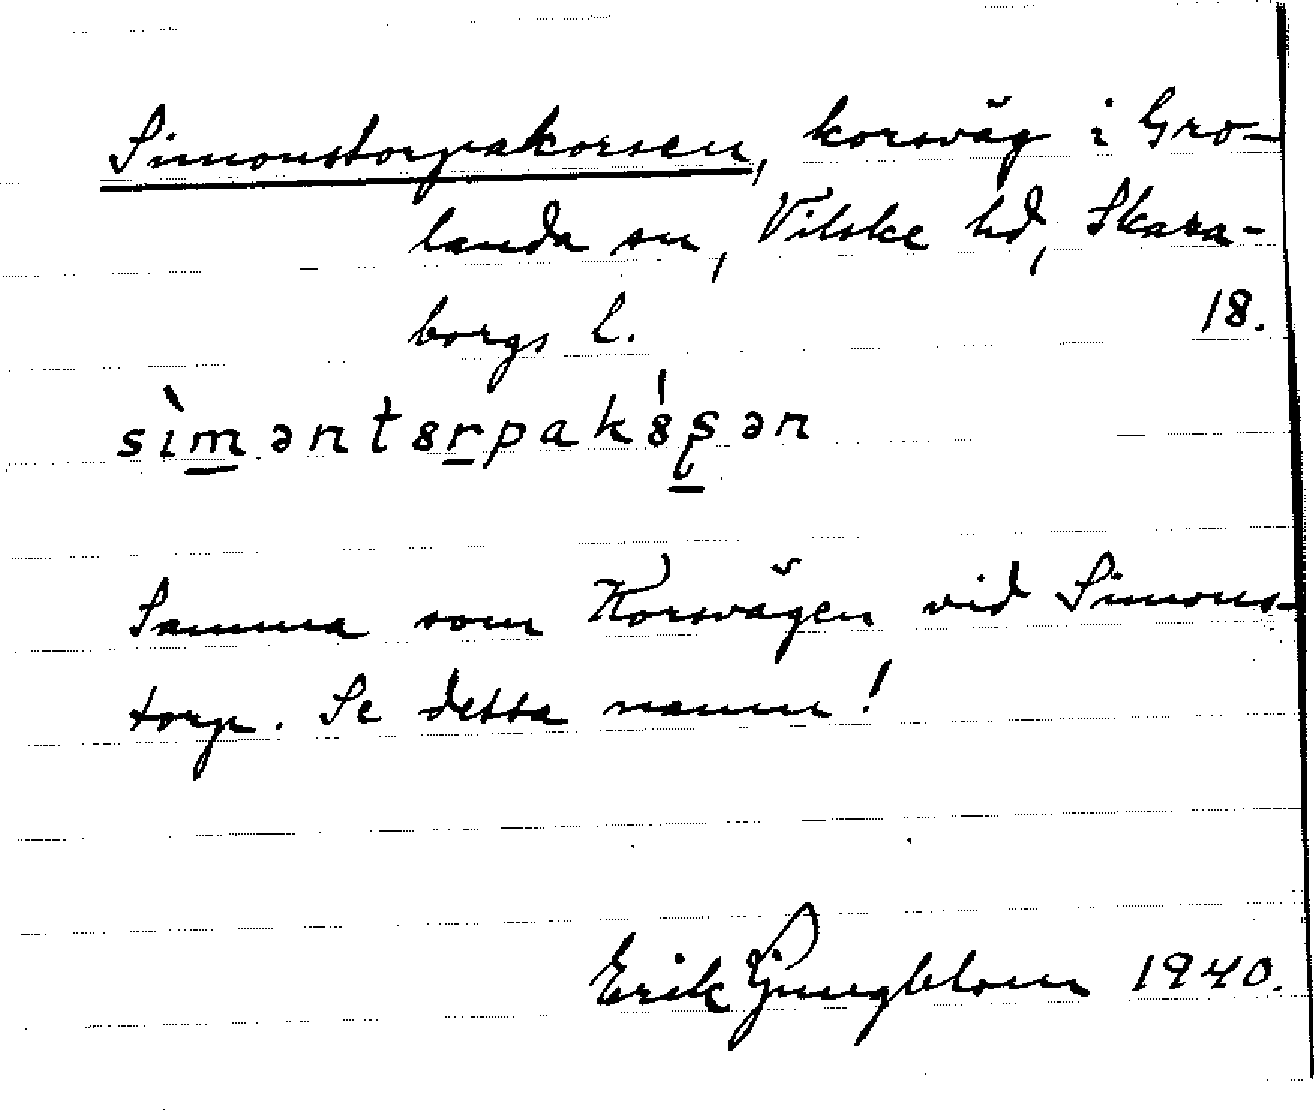 Simonstorpakorsen, korsväg i Gro-
landa sn, Vilske hd, Skara-
borgs l. 18.
sìməntɞrpakɞ́ʂən
Samma som Korsvägen vid Simons-
torp. Se detta namn!
Erik Ljungblom 1940.